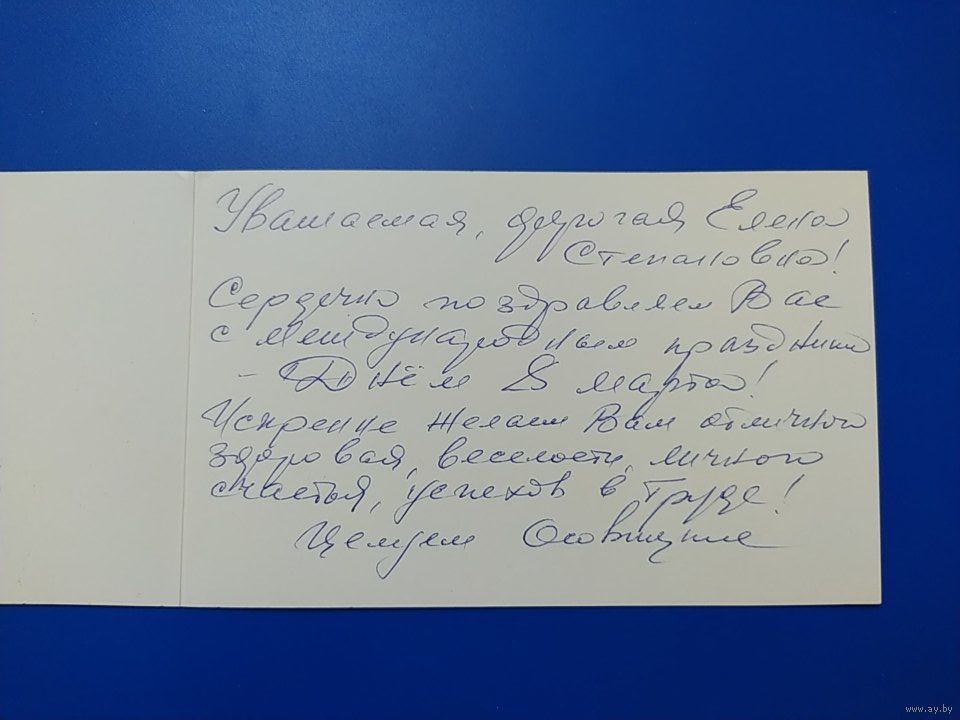 Уважаемая, дорогая Елена
Степановна!
Сердечно поздравляем Вас
с международным праздником
- Днём 8 марта!
Искренне желаем Вам отличного
здоровья, веселости, личного
счастья, успехов в труде!
Целуем
www.ay.by